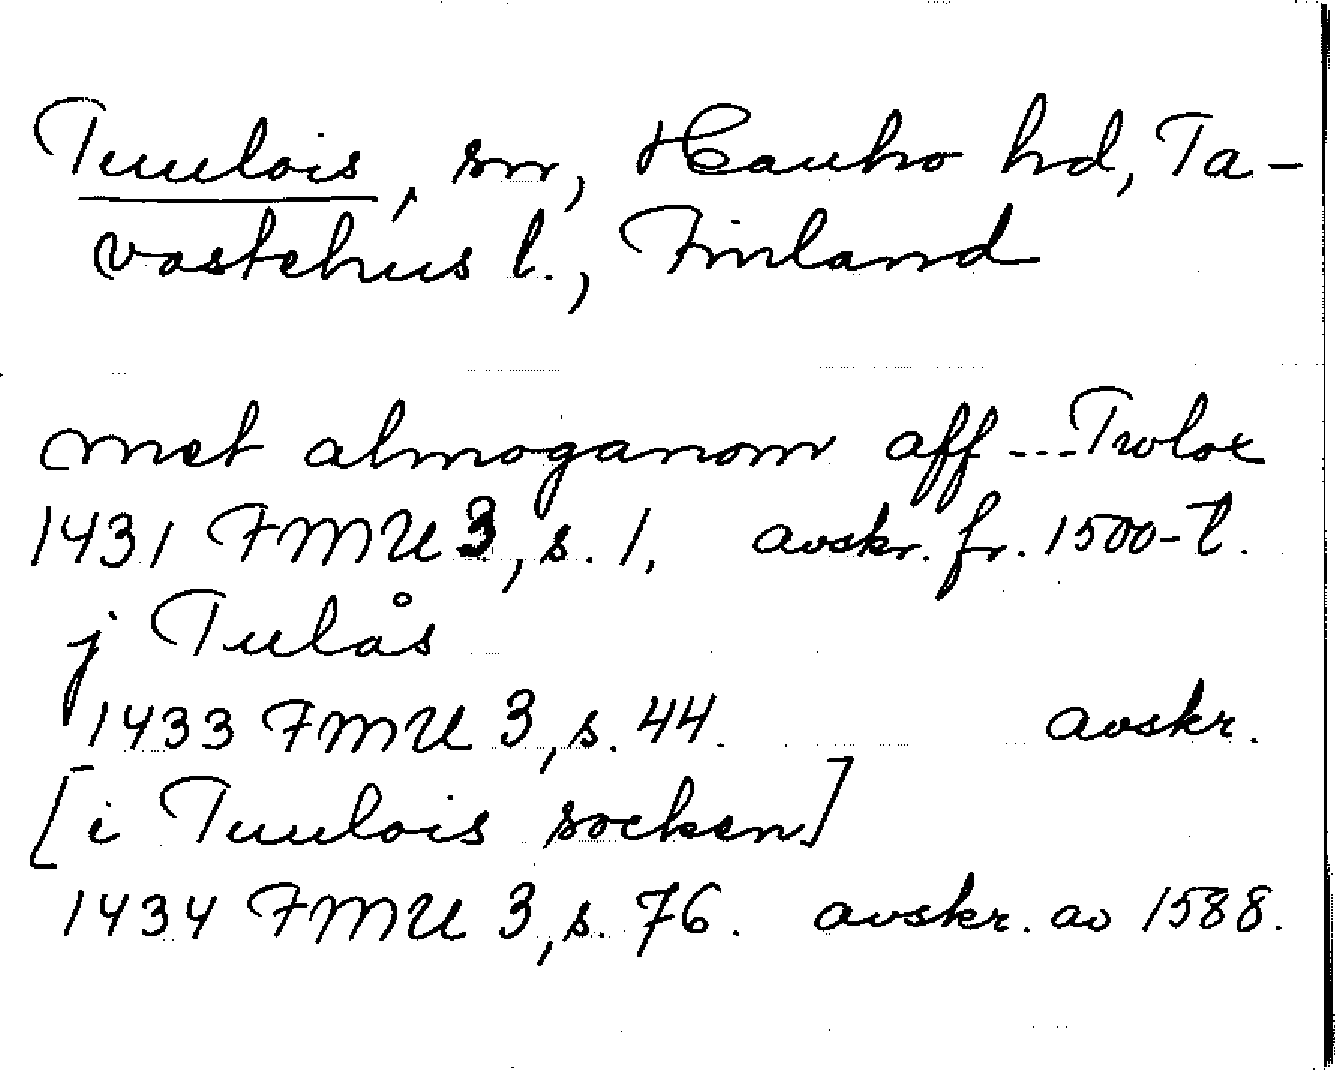 Tuulois, sn, Hauho hd, Ta-
vastehus l., Finland
met almoganom aff ... Twlox
1431 FMU 3, s. 1. avskr. fr. 1500-t.
j Tulås
1433 FMU 3, s. 44. avskr.
[i Tuulois socken]
1434 FMU 3, s. 76. avskr. av 1588.